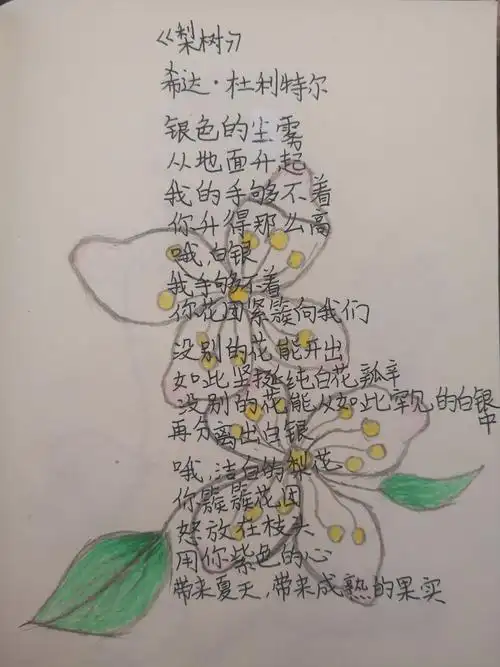 《梨树》
希达·杜利特尔
银色的尘雾
从地面升起
我的手够不着
你升得那么高
哦,白银
我手够不着
你花团紧簇向我们
没别的花能开出
如此坚挺纯白花瓢辛
没别的花能从如此罕见的白银中
再分离出白银
哦,洁白的梨花
你簇簇花团
好放在枝头
用你紫色的心
带来夏天,带来成熟的果实